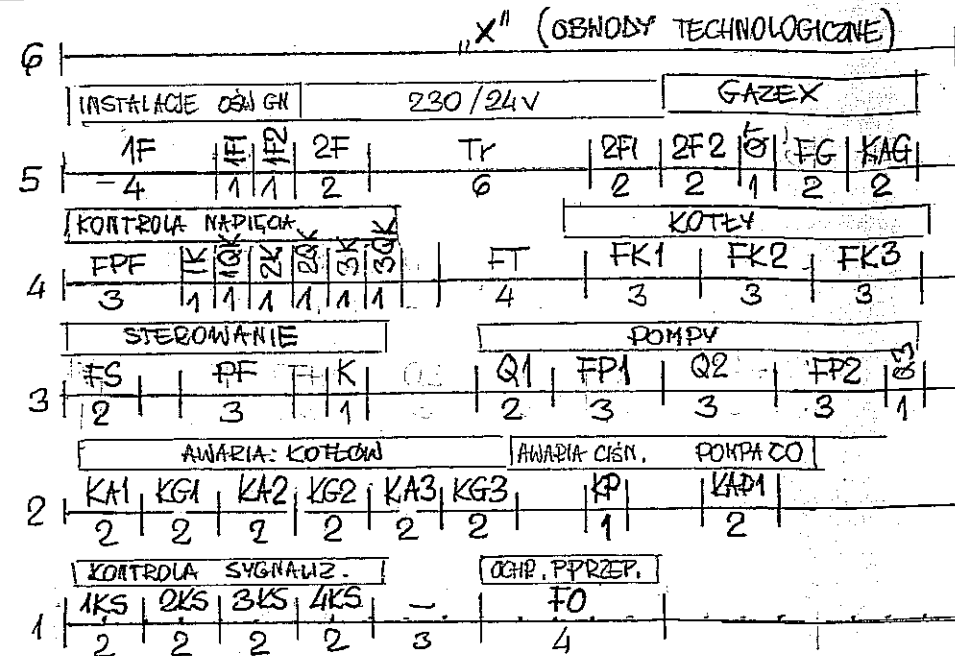 „X” (OBWODY TECHNOLOGICZNE)
6
INSTALACJE OŚW GN 230/24V GAZEX
1F 1F1 1F2 2F Tr 2F1 2F2 FG KAG
5
4 1 1 2 6 2 2 1 2 2
KONTROLA NAPIĘCIA KOTŁY
FPF 1K 1QK 2K 2QK 3K 3QK FT FK1 FK2 FK3
4
3 1 1 1 1 1 1 4 3 3 3
STEROWANIE POMPY
FS PF K Q1 FP1 Q2 FP2 Q3
3
2 3 1 2 3 3 3 1
AWARIA: KOTŁÓW AWARIA CIŚN. POMPA CO
KA1 KG1 KA2 KG2 KA3 KG3 KP KAP1
2
2 2 2 2 2 2 1 2
KONTROLA SYGNALIZ. OCHR. PPRZEP.
1KS 2KS 3KS 4KS – FO
1
2 2 2 2 3 4